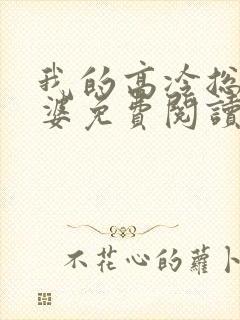 我的高冷总
婆免費閱讀
不花心的蘿卜